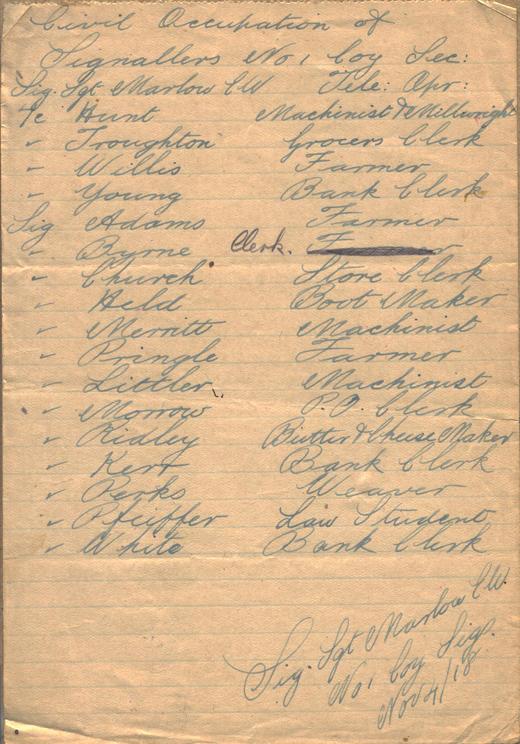 Civil Occupation of
Signallers No 1 Coy Sec:
Sig. Sgt Marlow C W Tele: Opr:
2/c Hunt Machinist & Millwright
" Troughton Grocers Clerk
" Willis Farmer
" Young Bank Clerk
Sig Adams Farmer
" Byrne Clerk.
" Church Store Clerk
" Held Boot Maker
" Merritt Machinist
" Pringle Farmer
" Littler Machinist
" Morrow P.O. Clerk
" Ridley Butter & Cheese Maker
" Kerr Bank Clerk
" Perks Weaver
" Pfeiffer Law Student
" White Bank Clerk
Sig. Sgt Marlow C W.
No 1 Coy Sigs.
Nov 4/18